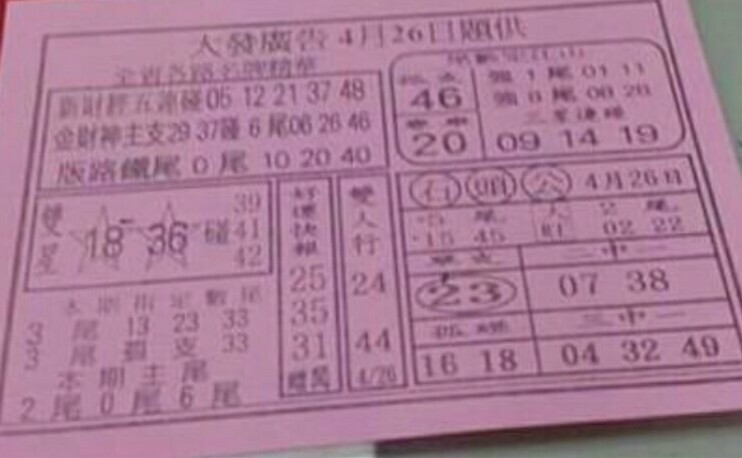 大發廣告4月26日題供
全省各路名牌精華
新財經五連碰05 12 21 37 48
金財神主支29 37碰6尾06 26 46
版路鐵尾0尾 10 20 40
46
20
強1尾01 11
強8尾08 28
三星連碰
09 14 19
雙星
18 36 碰
39
41
42
本期指定數尾
3尾 13 23 33
3尾 獨支 33
本期主尾
2尾0尾6尾
好運快報
25
35
31
贈閱
雙人行
24
44
4/26
石頭公 4月26日
5尾
15 45
2尾
02 22
單支
23
二中一
07 38
16 18
三中一
04 32 49